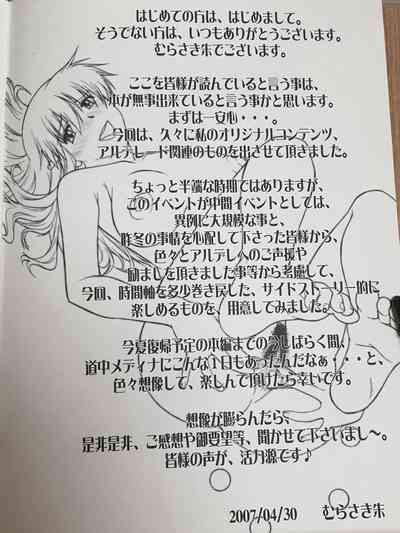 はじめての方は、はじめまして。
そうでない方は、いつもありがとうございます。
むらさき朱でございます。
ここを皆様が読んでいると言う事は、
本が無事出来ていると言う事かと思います。
まずは一安心・・・。
今回は、久々に私のオリジナルコンテンツ、
アルテレード関連のものを出させて頂きました。
ちょっと半端な時期ではありますが、
このイベントが中間イベントとしては、
異例に大規模な事と、
昨冬の事情を心配して下さった皆様から、
色々とアルテレへのご声援や
励ましを頂きました事等から考慮して、
今回、時間軸を多少巻き戻した、サイドストーリー的に
楽しめるものを、用意してみました。
今夏復帰予定の本編までのうしばらく間、
道中メディナにこんな1日もあったんだなぁ・・・と、
色々想像して、楽しんで頂けたら幸いです。
想像が膨らんだら、
是非是非、ご感想や御要望等、聞かせて下さいまし〜。
皆様の声が、活力源です♪
2007/04/30 むらさき朱